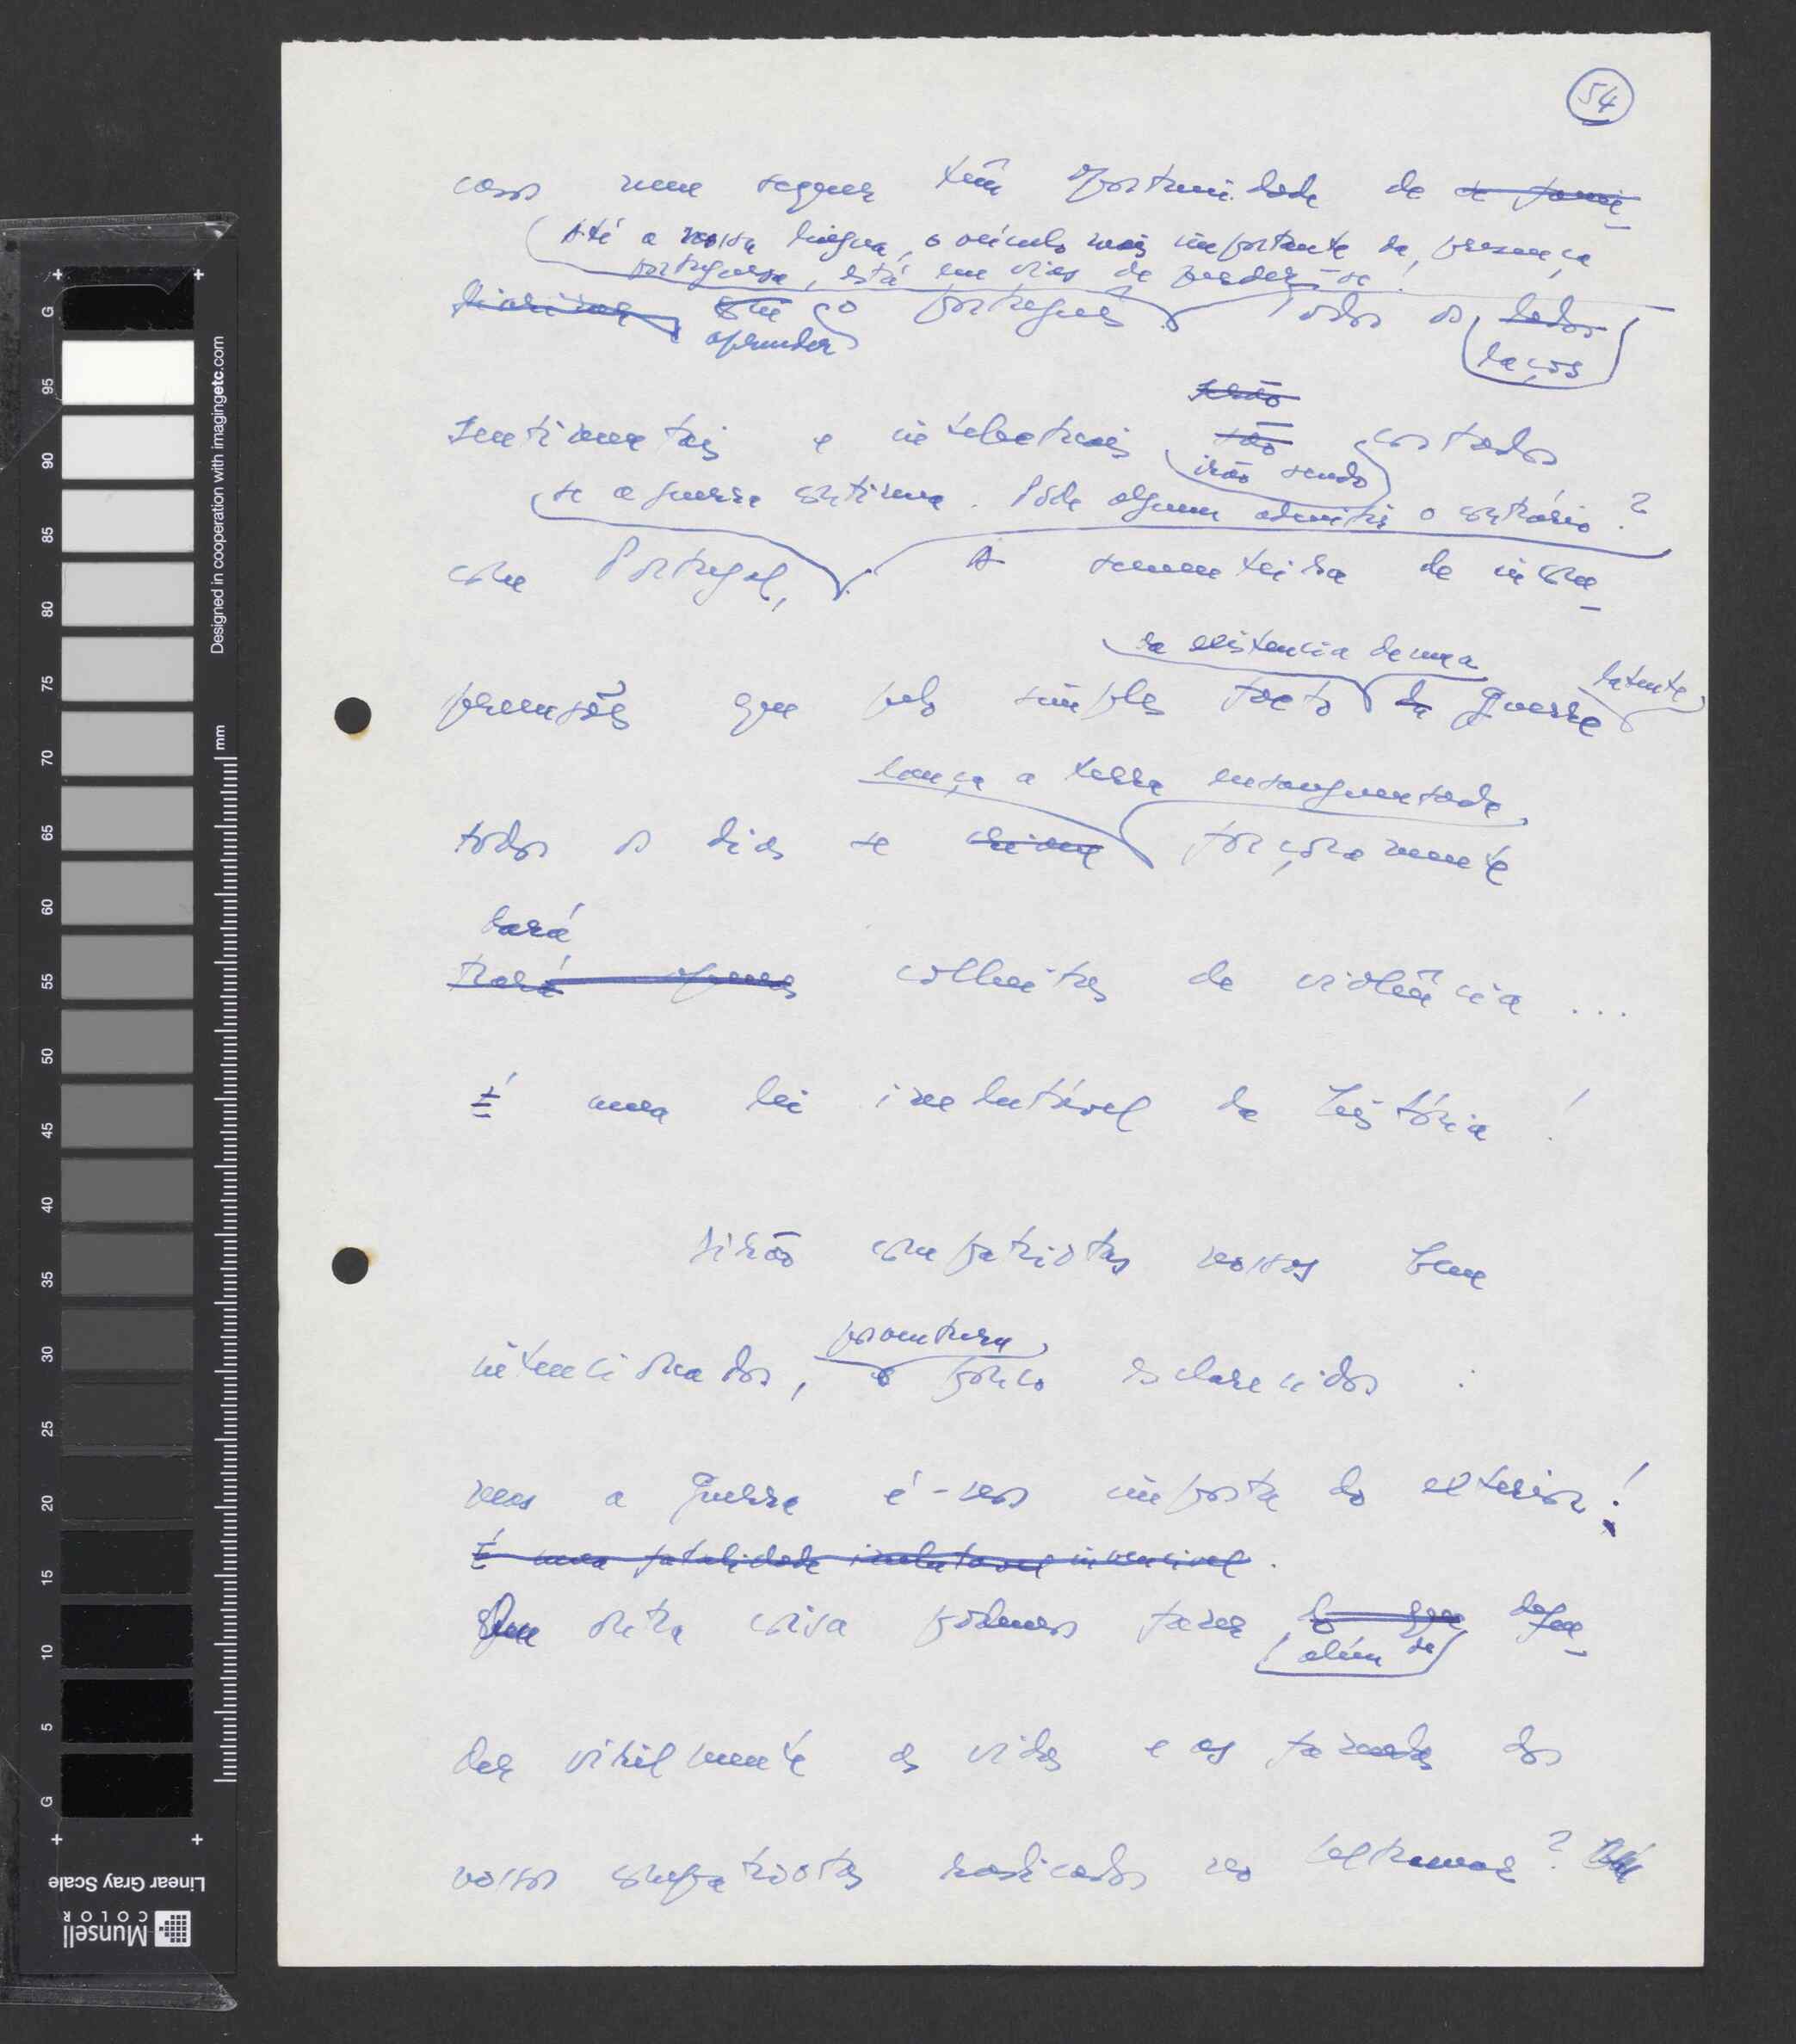 54
casos nem sequer têm oportunidade de se fami-
Até a nossa língua, o veículo mais importante da presença
portuguesa, está em vias de perder-se!
liarizar com o português. Todos os lados
aprender
laços
serão
sentimentais e intelectuais são cortados
irão sendo
se a guerra continua. Pode alguem admitir o contrário?
com Portugal, A sementeira de incom-
da existencia de uma
latente
preensões que pelo simples facto da guerra
lança a terra ensanguentada
todos os dias se forçosamente
dará
trará apenas colheitas de violência ...
É uma lei inelutável da história!
Dirão compatriotas nossos bem
porventura
intencionados, e pouco esclarecidos :
mas a guerra é-nos imposta do exterior!
É uma fatalidade inelutavel invencivel.
Que outra coisa podemos fazer do que defen-
além de
der virilmente as vidas e as fazendas dos
nossos compatriotas radicados no Ultramar?
Designed in cooperation with imagingetc.com
mm
G
95
90
85
80
75
70
65
60
55
50
45
40
35
30
25
20
15
10
5
G
Linear Gray Scale
Munsell
COLOR